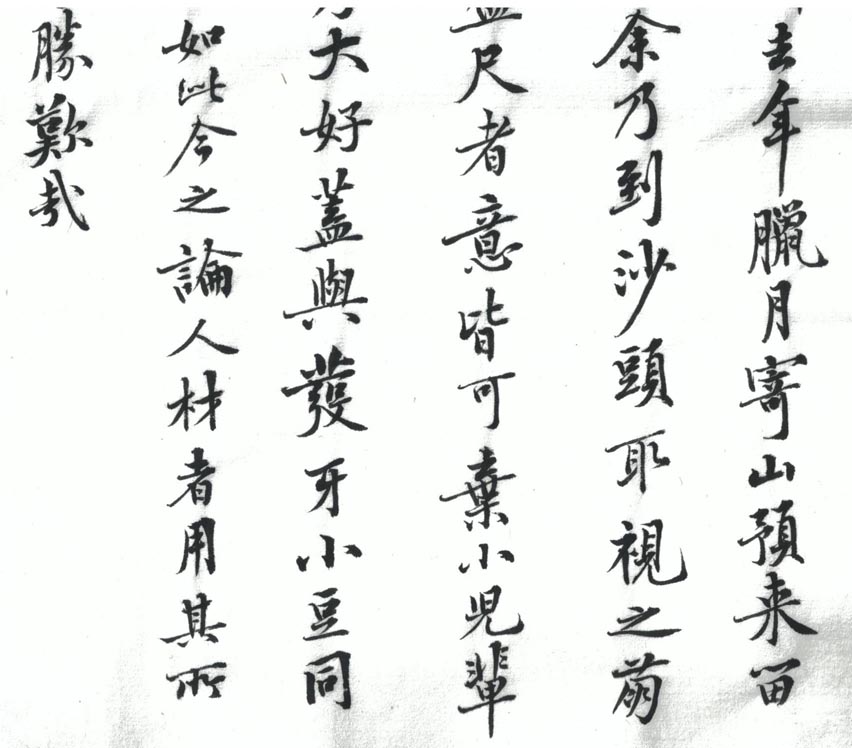 去年臘月寄山預来留
余乃到沙頭取視之萌
尺者意皆可棄小兒輩
大好蓋與發牙小豆同
如此今之論人材者用其所
勝歎哉